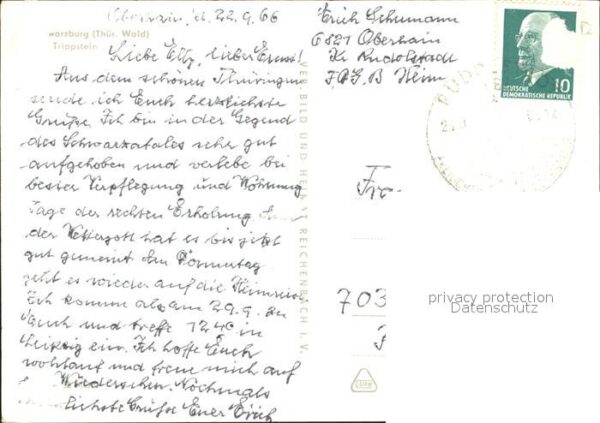 Oberhain, d. 22.9.66
warzburg (Thür. Wald)
Trippstein
Liebe Elly, lieber Ernst!
Aus dem schönen Thüringen
sende ich Euch herzlichste
Grüße. Ich bin in der Gegend
des Schwarzatales sehr gut
aufgehoben und verlebe bei
bester Verpflegung und Wohnung
Tage der rechten Erholung.
der Wettergott hat es bis jetzt
gut gemeint. Am Donnerstag
geht es wieder auf die Heimreise
Ich komme also am 29.9. zu
Euch und treffe 1240 in
Leipzig ein. Ich hoffe Euch
wohlauf und freue mich auf
Wiedersehen. Nochmals
lichste Grüße Euer Erich
VERL. BILD UND HEIMAT REICHENBACH I. V.
Erich Schumann
6821 Oberhain
Kr. Rudolstadt
FDGB Heim
10
DEUTSCHE
DEMOKRATISCHE REPUBLIK
RUDO
Fr
703
privacy protection
Datenschutz